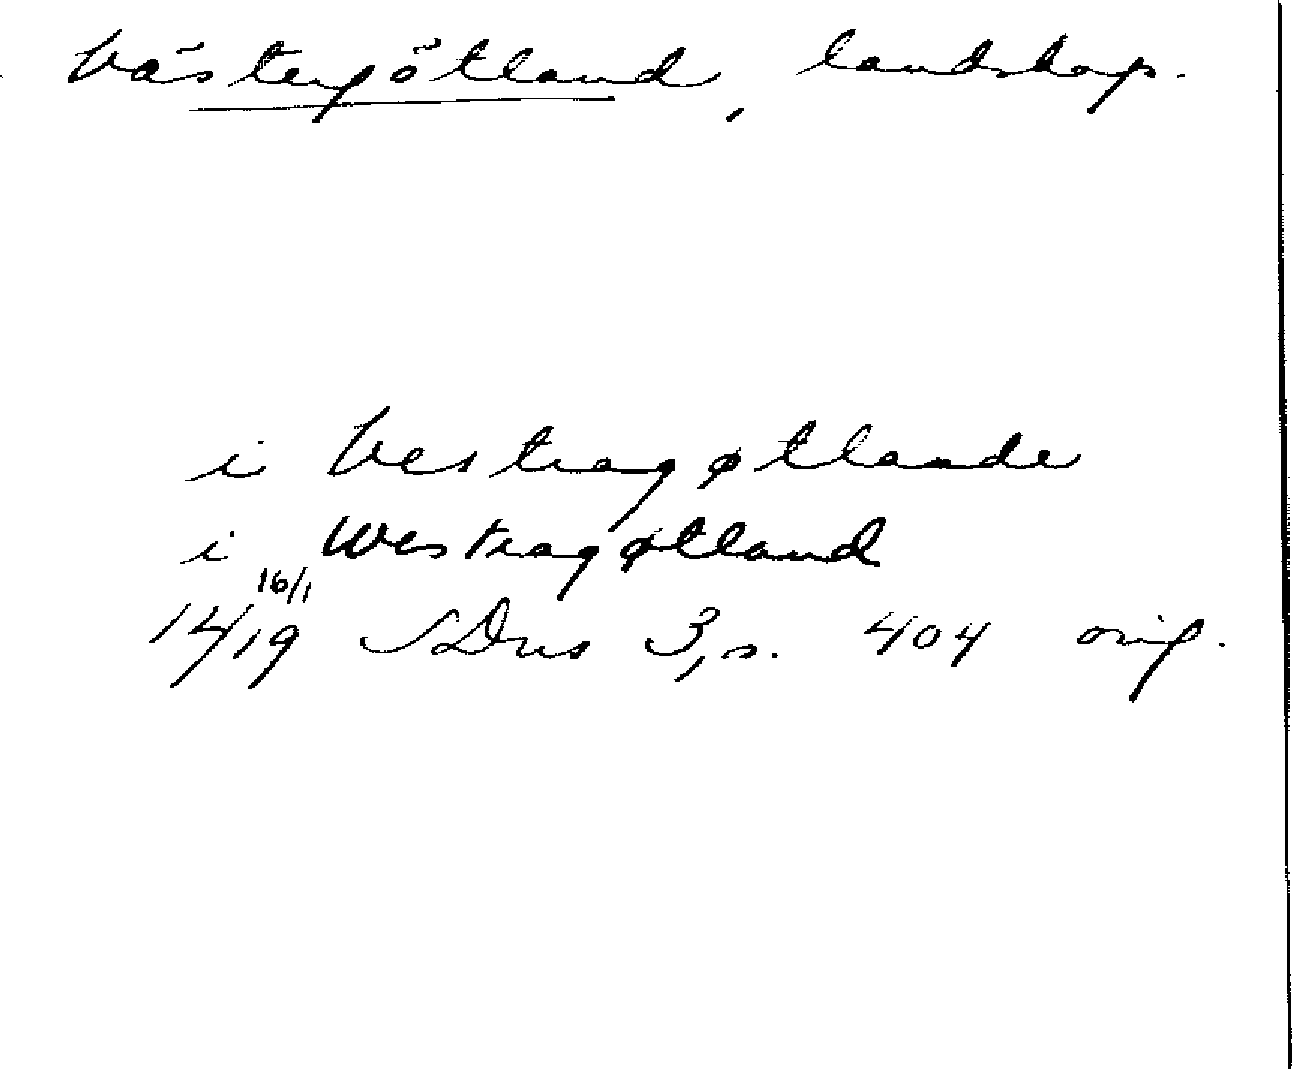 Västergötland, landskap.
i Vestragøtlande
i Westragøtland
16/1
14/19 SDns 3, s. 404 orig.